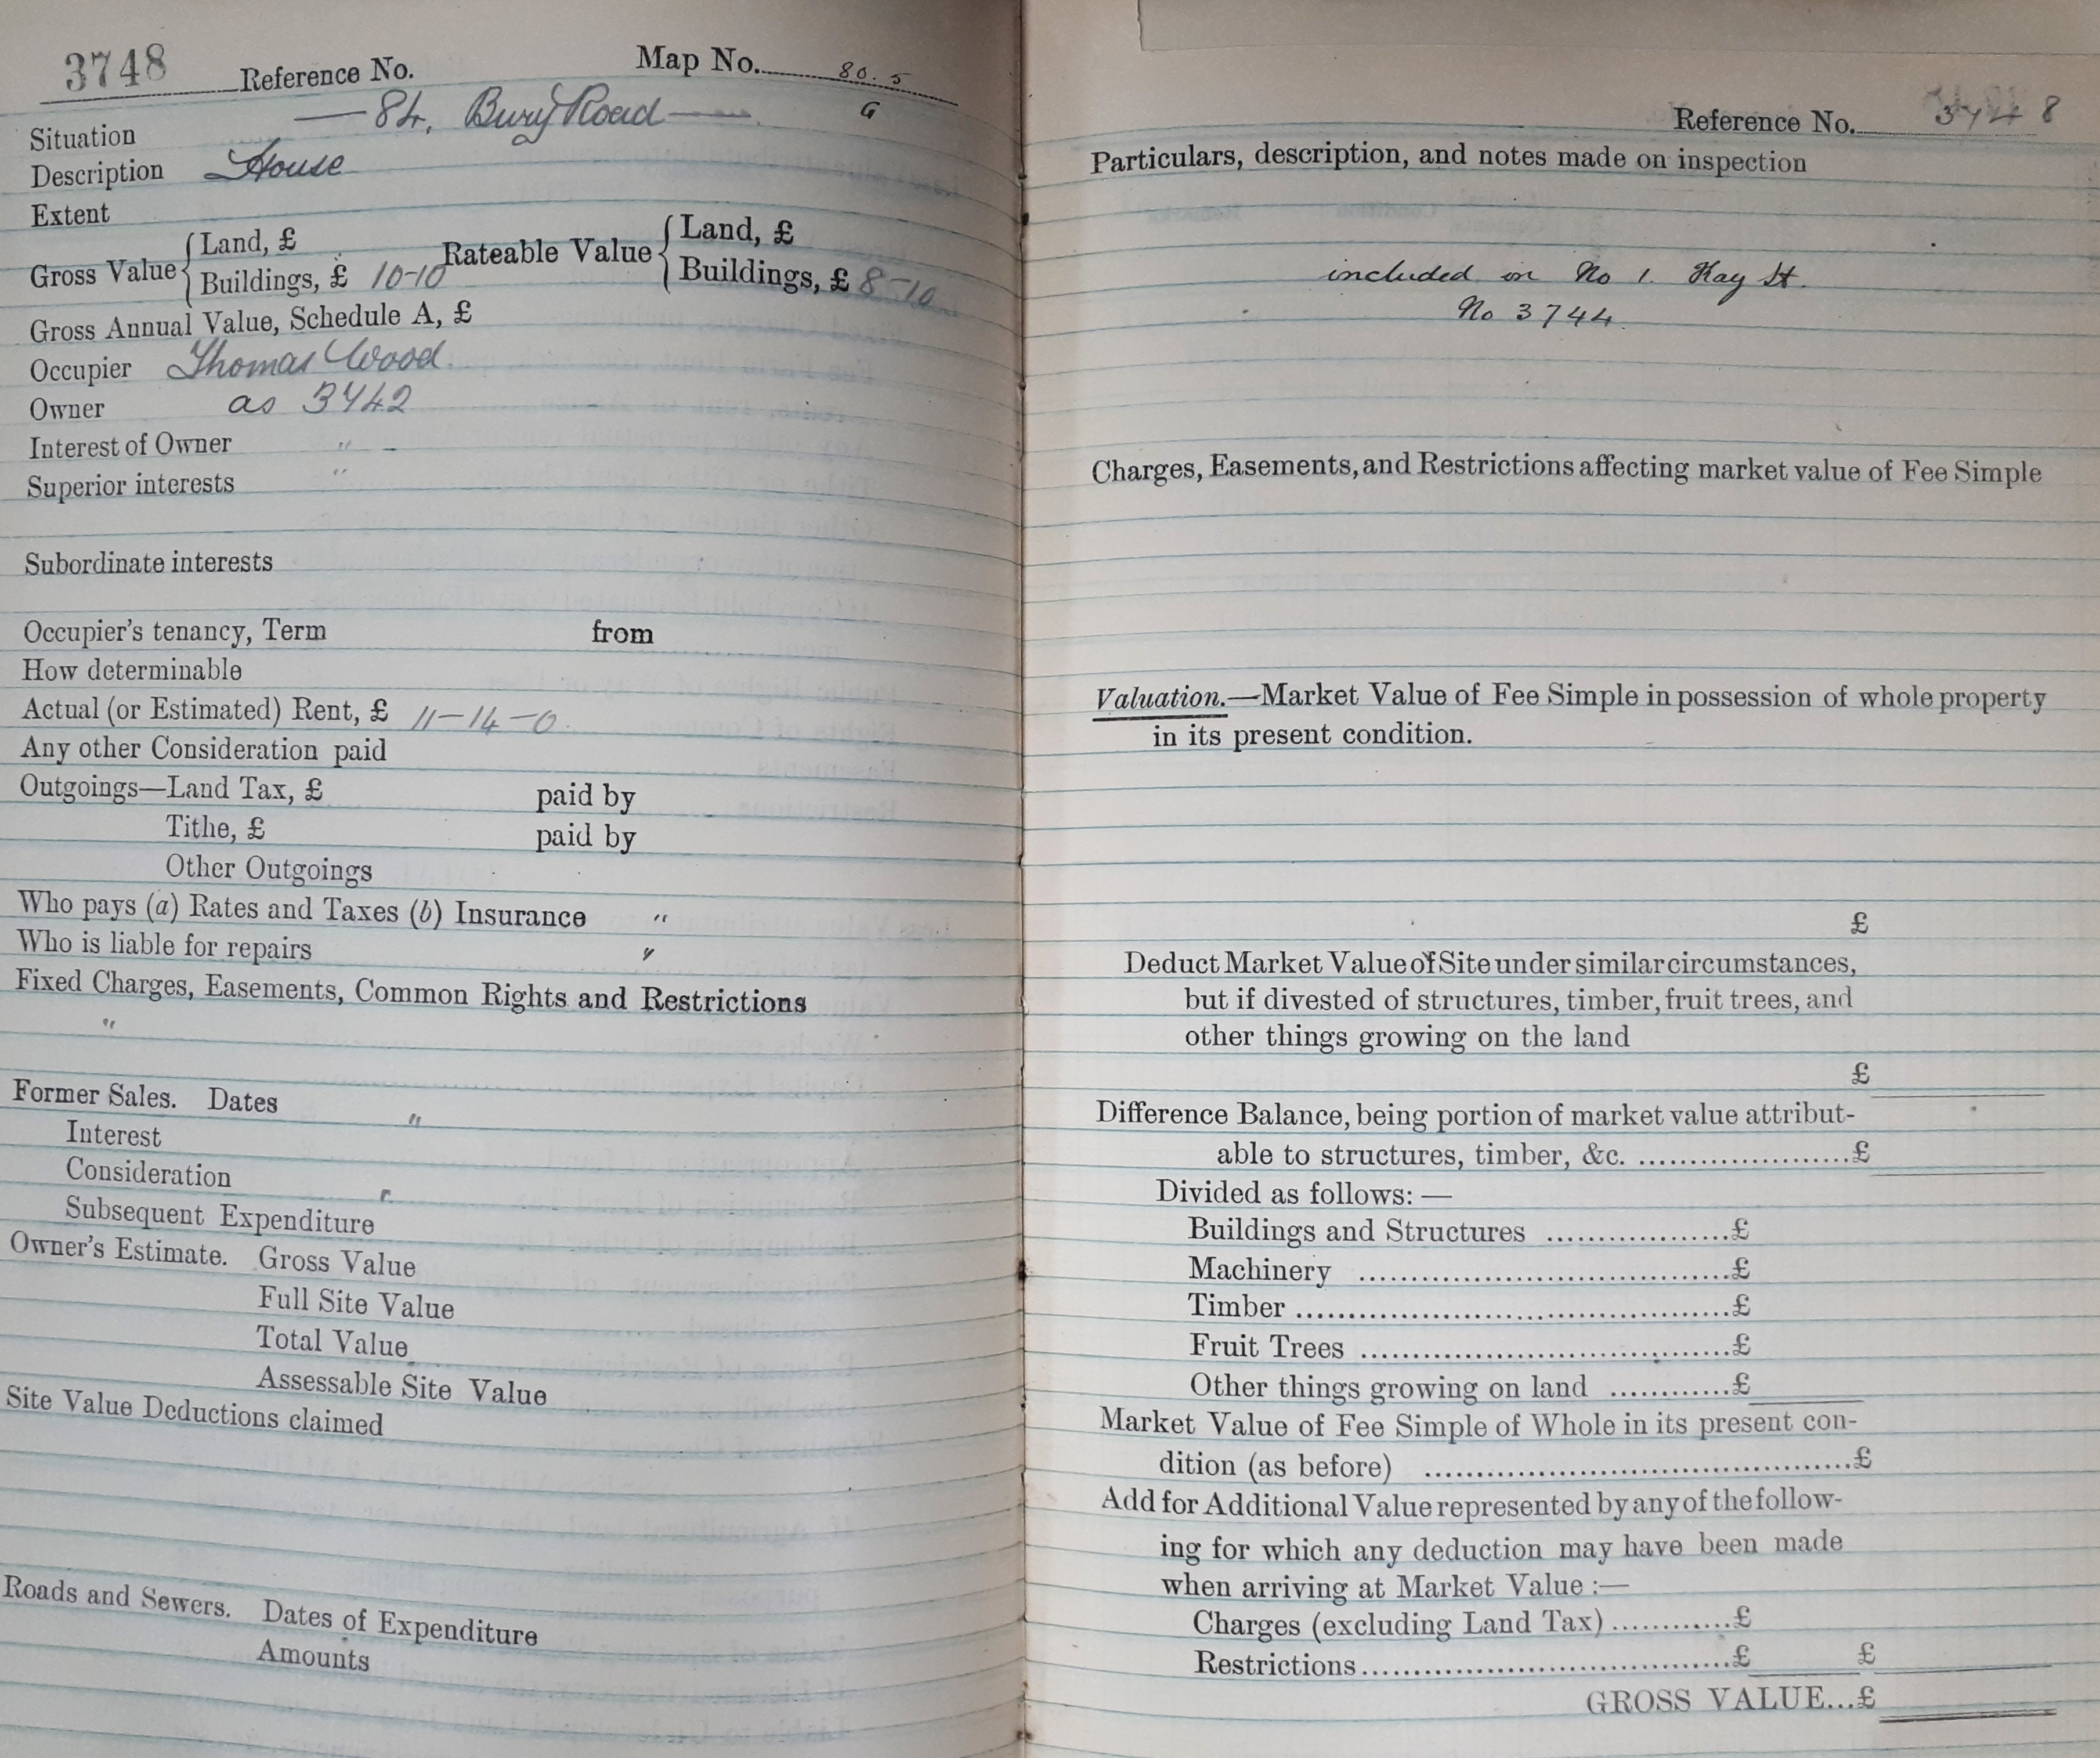 3748 Reference No. Map No. 80.5
G
Situation — 84, Bury Road —
Description House
Extent
Gross Value { Land, £ Rateable Value { Land, £
Buildings, £ 10-10 Buildings, £ 8-10
Gross Annual Value, Schedule A, £
Occupier Thomas Wood.
Owner as 3742
Interest of Owner " -
Superior interests "
Subordinate interests
Occupier's tenancy, Term from
How determinable
Actual (or Estimated) Rent, £ 11-14-0.
Any other Consideration paid
Outgoings—Land Tax, £ paid by
Tithe, £ paid by
Other Outgoings
Who pays (a) Rates and Taxes (b) Insurance "
Who is liable for repairs "
Fixed Charges, Easements, Common Rights and Restrictions
"
Former Sales. Dates "
Interest
Consideration "
Subsequent Expenditure
Owner's Estimate. Gross Value
Full Site Value
Total Value
Assessable Site Value
Site Value Deductions claimed
Roads and Sewers. Dates of Expenditure
Amounts
Reference No. 3748
Particulars, description, and notes made on inspection
included in No 1. Kay St.
No 3744
Charges, Easements, and Restrictions affecting market value of Fee Simple
Valuation.—Market Value of Fee Simple in possession of whole property
in its present condition.
£
Deduct Market Value of Site under similar circumstances,
but if divested of structures, timber, fruit trees, and
other things growing on the land
£
Difference Balance, being portion of market value attribut-
able to structures, timber, &c. ......................£
Divided as follows: —
Buildings and Structures ...................£
Machinery .......................................£
Timber .............................................£
Fruit Trees ......................................£
Other things growing on land ............£
Market Value of Fee Simple of Whole in its present con-
dition (as before) .............................................£
Add for Additional Value represented by any of the follow-
ing for which any deduction may have been made
when arriving at Market Value :—
Charges (excluding Land Tax) ............£
Restrictions.......................................£ £
GROSS VALUE...£